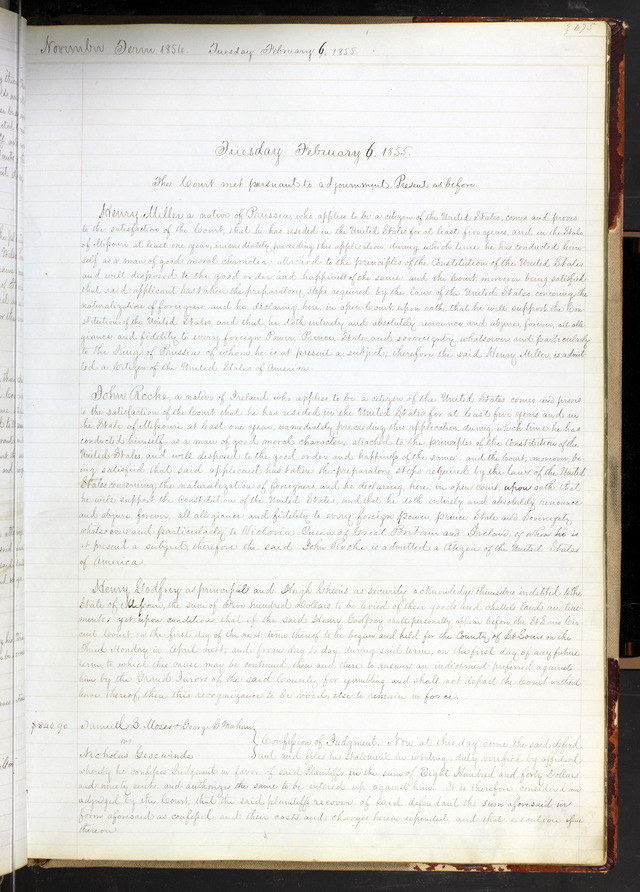 475
November Term 1854 Tuesday February 6. 1855.
Tuesday February 6. 1855.
The Court met pursuant to adjournment. Present as before
Henry Miller a native of Prussia who applies to be a citizen of the United States, comes and proves
to the satisfaction of the Court that he has resided in the United States for at least five years, and in the State
of Missouri at least one year, immediately preceding this application, during which time he has conducted him
self as a man of good moral character attached to the principles of the Constitution of the United States
and well disposed to the good order and happiness of the same and the Court moreover being satisfied
that said applicant has taken the preparatory steps required by the laws of the United States concerning the
naturalization of foreigners, and he declaring here in open Court upon oath that he will support the Con
stitution of the United States, and that he doth entirely and absolutely renounce and abjure, forever, all alle
giance and fidelity to every foreign Power, Prince State and sovereignty whatsoever and particularly
to the King of Prussia of whom he is at present a subject, therefore the said Henry Miller, is admit
ted a Citizen of the United States of America
John Roche, a native of Ireland who applies to be a citizen of the United States comes and proves
to the satisfaction of the Court that he has resided in the United States for at least five years and in
the State of Missouri at least one year, immediately preceding this application, during which time he has
conducted himself as a man of good moral character, attached to the principles of the Constitution of the
United States, and well disposed to the good order and happiness of the same and the Court, moreover, be
ing satisfied that said applicant has taken the preparatory steps required by the laws of the United
States concerning the naturalization of foreigners, and he declaring here in open court, upon oath that
he will support the Constitution of the United States, and that he doth entirely and absolutely renounce
and abjure forever, all allegiance and fidelity to every foreign power, Prince State and Sovereignty
whatsoever and particularly to Victoria Queen of Great Britain and Ireland, of whom he is
at present a subject, therefore the said John Roche is admitted a Citizen of the United States
of America
Henry Godfrey as principal and Hugh as security acknowledge themselves indebted to the
State of Missouri, the sum of Five hundred Dollars to be levied of their goods and chattels lands and tene
ments yet upon condition, that if the said Henry Godfrey shall personally appear before the St Louis Cir
cuit Court on the first day of the next term thereof to be begun and held for the County of St Louis on the
Third Monday in April next, and from day to day during said term, or the first day of any future
term to which this cause may be continued, then and there to answer an indictment preferred against
him by the Grand Jurors of the said County for gambling and shall not depart the Court without
leave thereof, then this recognizance to be void, else to remain in force
$840.90 Samuel B. Moses & George G Mahan
vs Confession of Judgment. Now at this day come the said defend
Nicholas ant and files his Statement in writing duly verified by affidavit
whereby he confesses Judgment in favor of said Plaintiffs in the sum of Eight Hundred and forty Dollars
and ninety cents and authorizes the same to be entered up against him. It is therefore considered and
adjudged by the Court, that the said plaintiffs recover of said defendant the sum aforesaid in
form aforesaid as confessed and their costs and charges herein expended, and that execution issue
thereon